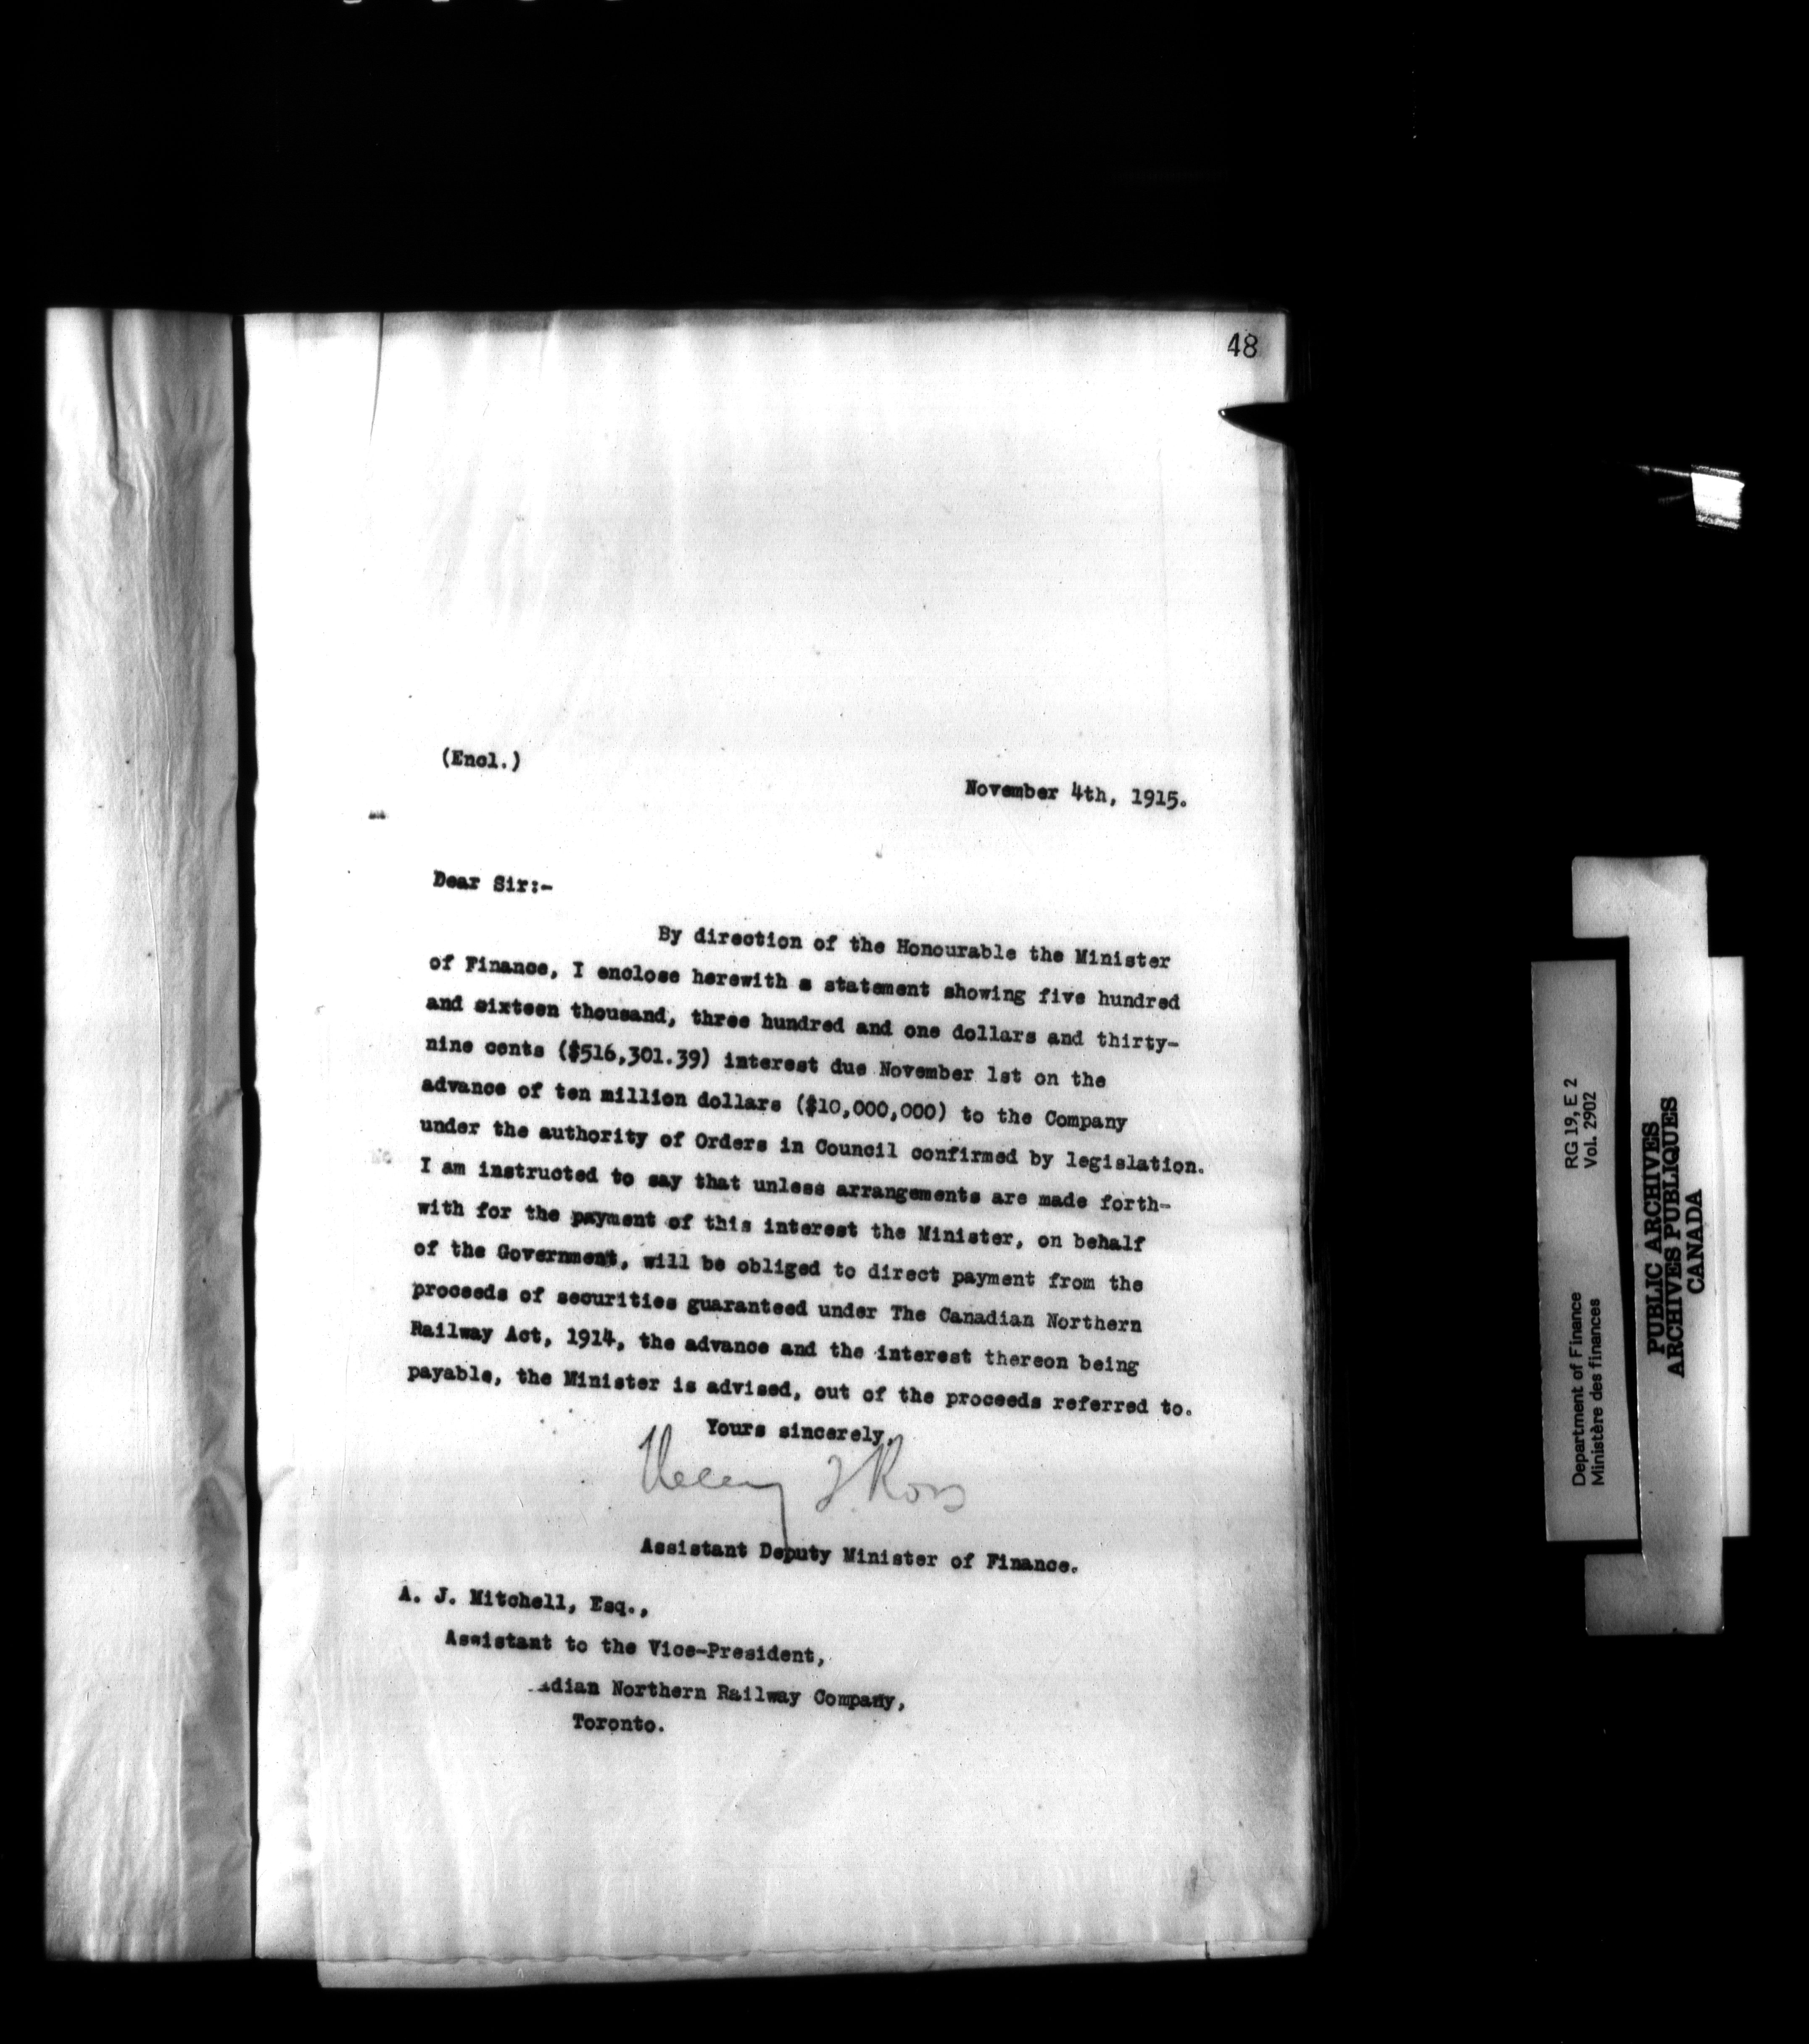 48
(Encl.)
November 4th, 1915.
Dear Sir:-
By direction of the Honourable the Minister
of Finance, I enclose herewith a statement showing five hundred
and sixteen thousand, three hundred and one dollars and thirty-
nine cents ($516,301.39) interest due November 1st on the
advance of ten million dollars ($10,000,000) to the Company
under the authority of Orders in Council confirmed by legislation.
I am instructed to say that unless arrangements are made forth-
with for the payment of this interest the Minister, on behalf
of the Government, will be obliged to direct payment from the
proceeds of securities guaranteed under The Canadian Northern
Railway Act, 1914, the advance and the interest thereon being
payable, the Minister is advised, out of the proceeds referred to.
Yours sincerely,
Ross
Assistant Deputy Minister of Finance.
A. J. Mitchell, Esq.,
Assistant to the Vice-President,
adian Northern Railway Company,
Toronto.
Department of Finance RG 19, E 2
Ministère des finances Vol. 2902
PUBLIC ARCHIVES
ARCHIVES PUBLIQUES
CANADA